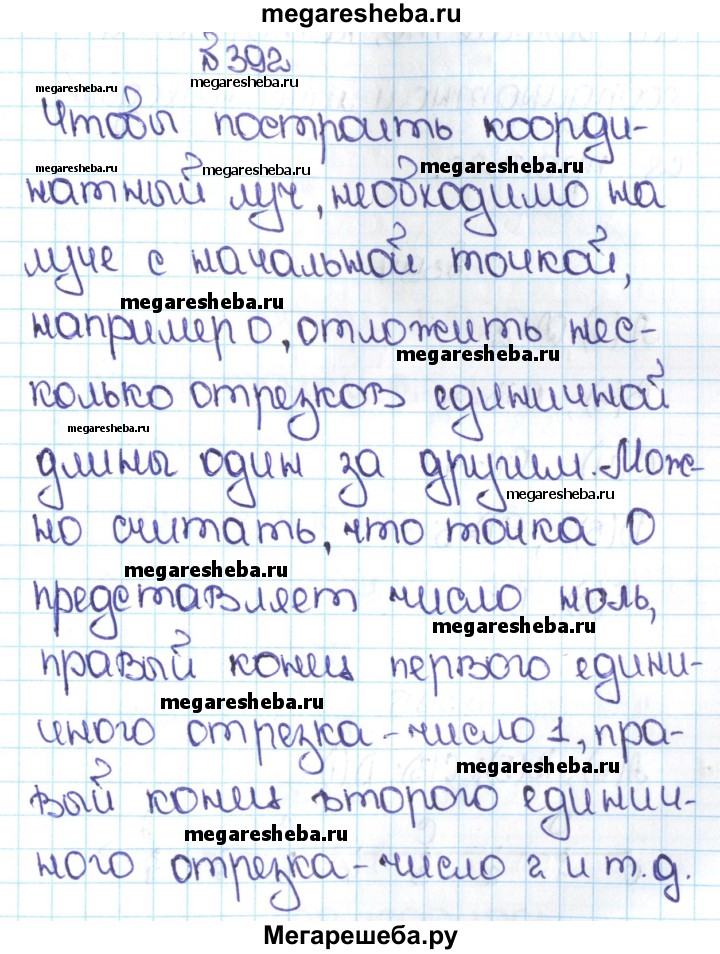 megaresheba.ru
№392
megaresheba.ru
megaresheba.ru
Чтобы построить коорди-
megaresheba.ru
megaresheba.ru
megaresheba.ru
натный луч, необходимо на
луче с начальной точкой,
megaresheba.ru
например О, отложить нес-
megaresheba.ru
колько отрезков единичной
megaresheba.ru
длины один за другим. Мож-
megaresheba.ru
но считать, что точка О
megaresheba.ru
представляет число ноль,
megaresheba.ru
правый конец первого едини-
megaresheba.ru
чного отрезка - число 1, пра-
megaresheba.ru
вый конец второго единич-
megaresheba.ru
ного отрезка - число 2 и т.д.
Мегарешеба.ру